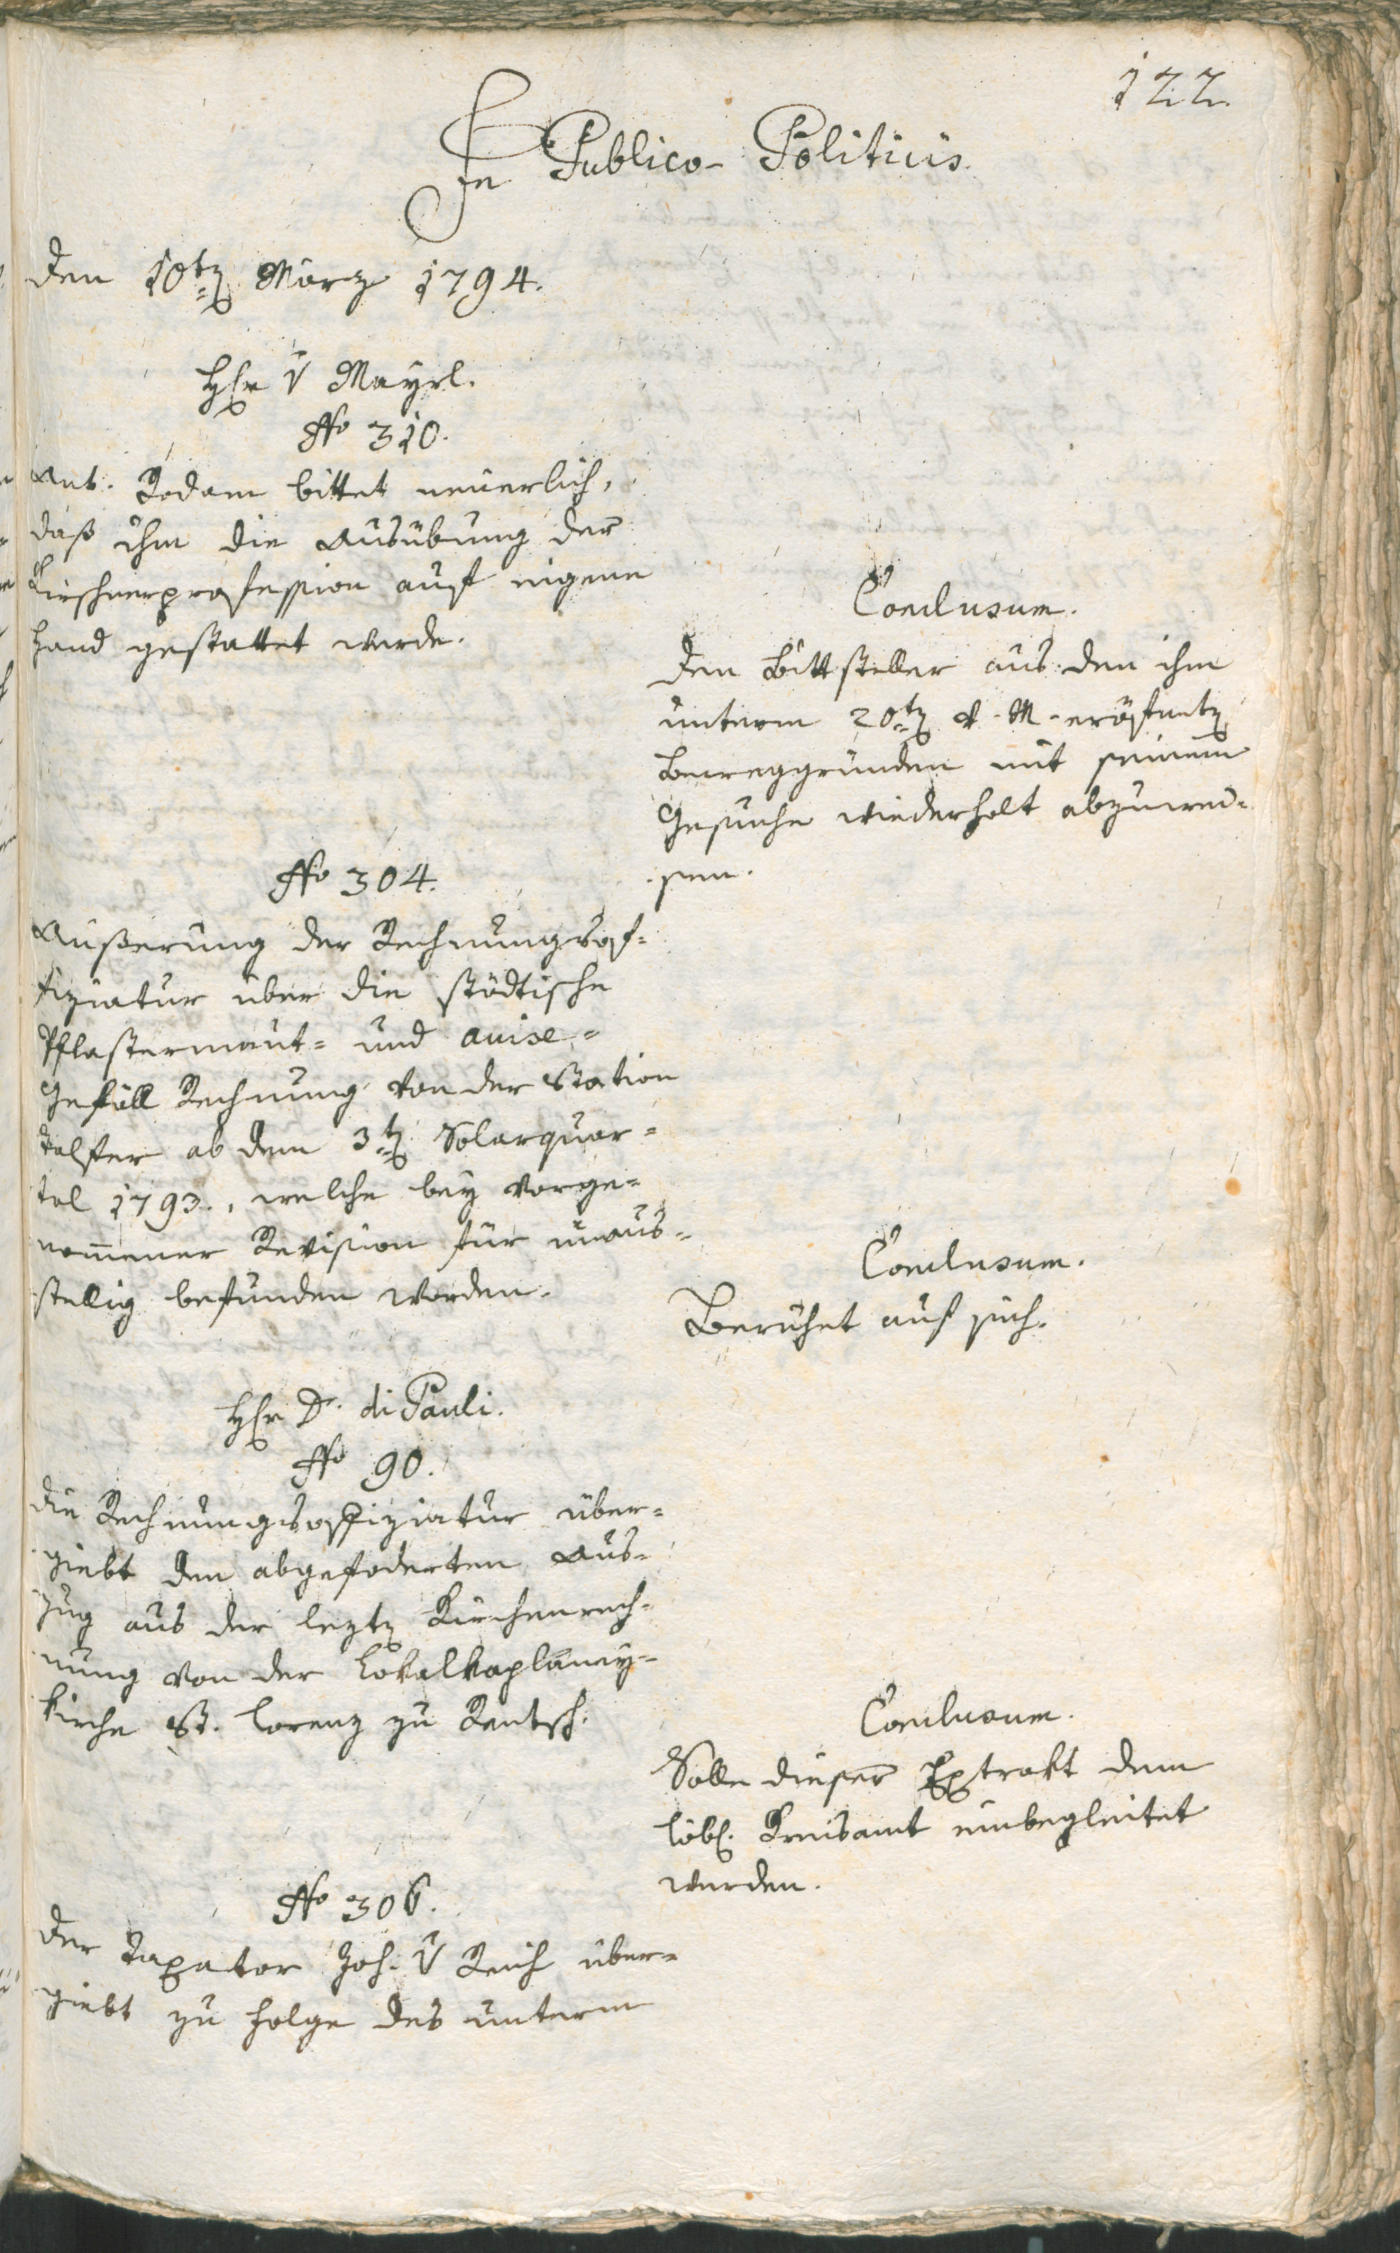 122.
In Publico-Politicis.
den 10ten März 1794.
Hr v Mayrl.
No 310.
Ant. Rodam bittet neuerlich,
daß ihm die Ausübung der
Kirschnerprofession auf eigene
Hand gestattet werde.
Conclusum.
Den Bittsteller aus den ihm
unterm 20ten v. M. eröfneten
Beweggründen mit seinem
Gesuche wiederholt abzuwei-
sen.
No 304.
Äußerung der Rechnungsof-
fiziatur über die städtische
Pflastermaut- und accise-
Gefäll Rechnung von der Station
Talfer ab dem 3ten Solarquar-
tal 1793., welche bey vorge-
nom̄ener Revision für unaus-
stellig befunden worden.
Conclusum.
Beruhet auf sich.
Hr Dr. di Pauli.
No 90.
Die Rechnungsoffiziatur über-
giebt den abgefoderten Aus-
zug aus der lezten Kirchenrech-
nung von der Lokalkaplaney-
kirche St. Lorenz zu Rentsch.
Conclusum.
Solle dieser Extrakt dem
löbl. Kreisamt einbegleitet
werden.
No 306.
Der Taxator Joh. v Reich über-
giebt zu Folge des unterm